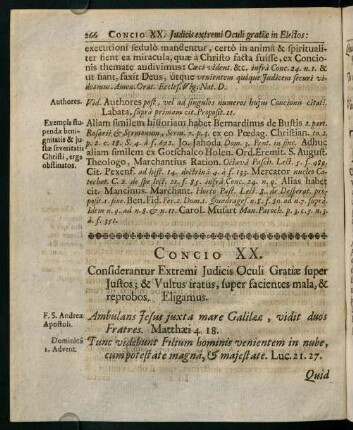 266 CONCIO XX. Judicis extremi Oculi gratiæ in Electos:
executioni sedulò mandentur, certò in animâ & spirituali-
ter fient ea miracula, quæ à Christo facta fuisse, ex Concio-
nis themate audivimus: Cæci vident. &c. infrà Conc. 24. n. 1. &
ut fiant, faxit Deus, utque venientem quique Judicem securi vi-
deamus. Amen. Orat. Eccles. Vig. Nat. D.
Authores. Vid. Authores post, vel ad singulos numeros hujus Concionis citat.
Labata, supra primam cit. Proposit. 11.
Exempla stu-
penda beni-
gnitatis & ju-
stæ severitatis
Christi, erga
obstinatos.
Aliam similem historiam habet Bernardinus de Bustis 2. part.
Rosarii & Sermonum, Serm. 7. p. 3. ex eo Pædag. Christian. to. 2.
Jo. Justnoda Dom. 1. Pent. in fine. Adhuc
aliam similem ex Gotschalco Holen. Ord. Eremit. S. August.
Theologo, Marchantius Ration. Octava Pasch. Lect. 5. f. 458.
Cit. Pexenf. ad hist. 14. doctrin à 4. d f. 135. Mercator nucleo Ca-
techet. C. 2. de spe hist. 22. f. 85. infrà Conc. 24. n. 9. Alias habet
cit. Mancinus. Marchant. Horto Past. Lect. 8. de Desperat. pro-
posit. 1. fine. Ben. Fid. Fer. 2. Dom. 1. Quadrages. n. 5. f. 50. ad n. 7. suprà
idem n. 9. ad n. 5. & n. 11. Carol. Musart Man. Paroch. p. 3. c. 7. n. 3.
à f. 351.
CONCIO XX.
Considerantur Extremi Judicis Oculi Gratiæ super
Justos; & Vultus iratus, super facientes mala, &
reprobos. Eligamus.
F. S. Andreæ
Apostoli.
Ambulans Jesus juxta mare Galilææ, vidit duos
Fratres. Matthæi 4. 18.
Dominicâ
1. Advent.
Tunc videbunt Filium hominis venientem in nube,
cum potestate magnâ, & majestate. Luc. 21. 27.
Quid